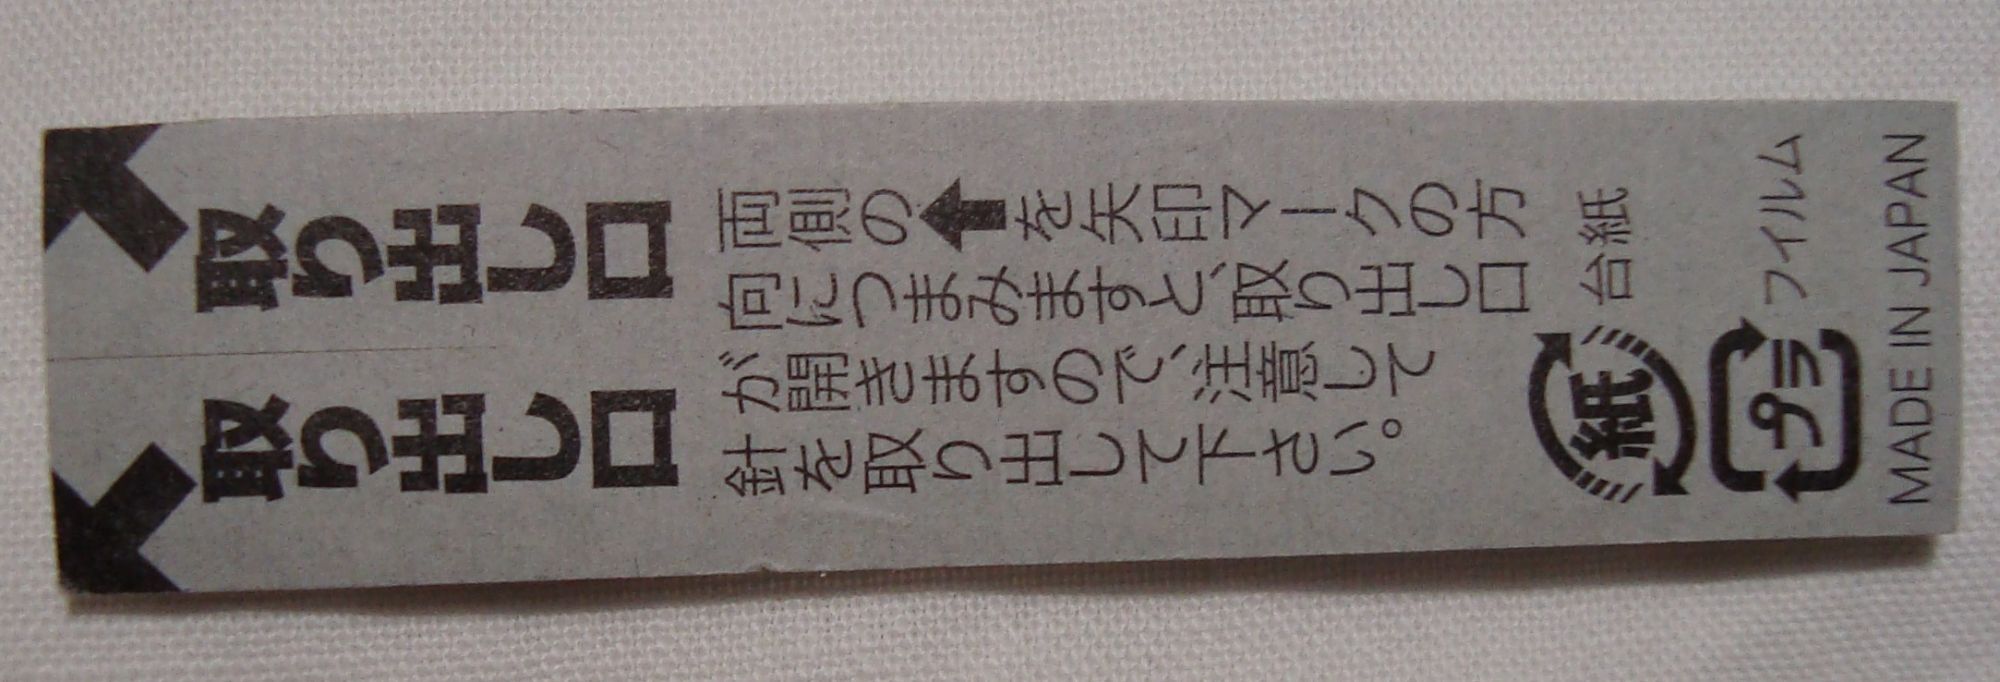 取り出し口
取り出し口
両側の⬆を矢印マークの方
向につまみますと、取り出し口
が開きますので、注意して
針を取り出して下さい。
紙 台紙
プラ フィルム
MADE IN JAPAN